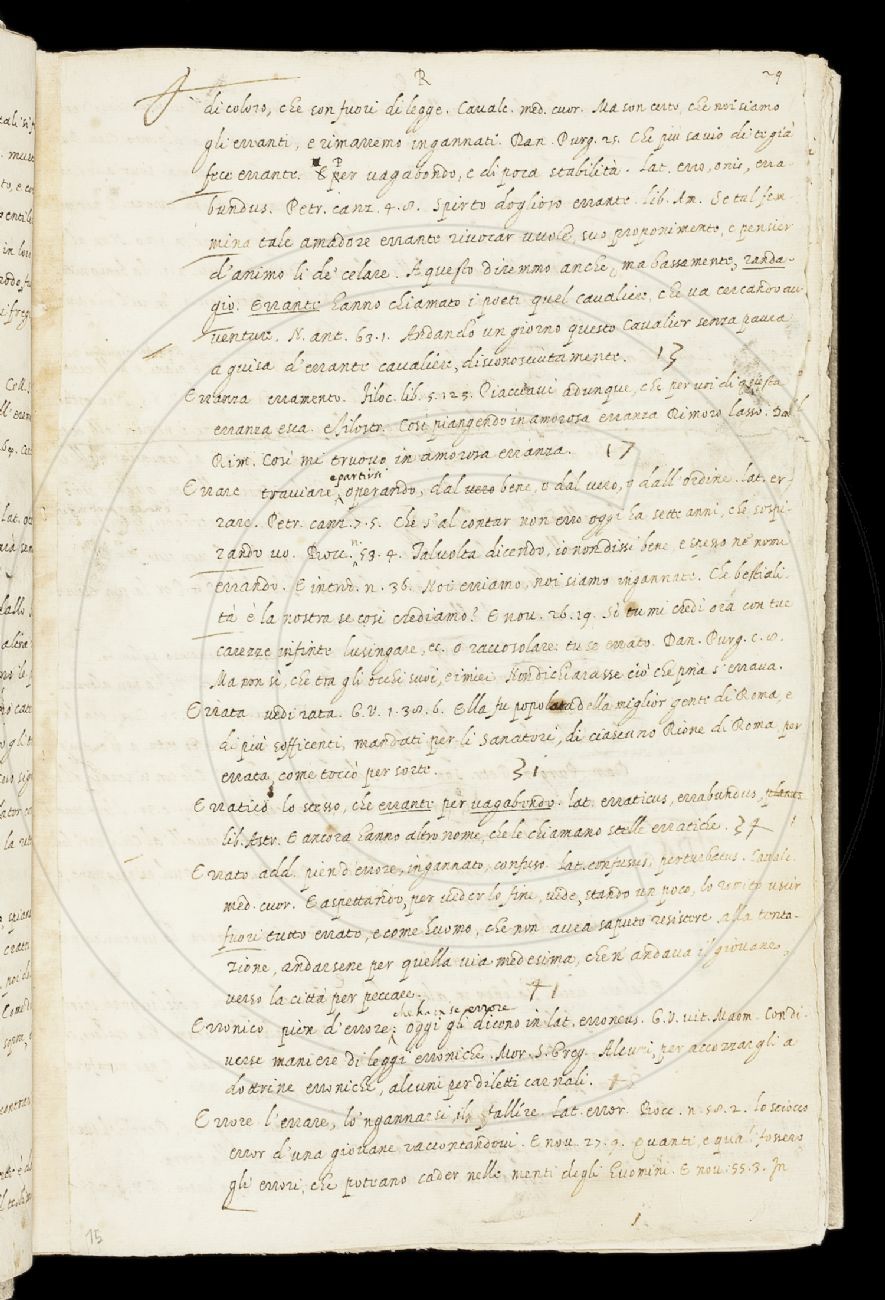 R 29
di coloro, che son fuori di legge. Cavalc. med. cuor. Ma son certo, che noi siamo
gli erranti, e rimarremo ingannati. Dan. Purg. 25. Che più savio di te già
fece errante. E per vagabondo, e di poca stabilità. Lat. erro, onis, erra-
bundus. Petr. canz. 4. 8. Spirto doglioso errante. lib. Am. Se tal fem-
mina tale amadore errante rivocar vuole, suo proponimento, e pensier
d'animo li de' celare. A questo diremmo anche, ma bassamente, randa-
gio. Errante hanno chiamato i poeti quel cavaliere, che va cercando av-
venture. N. ant. 63. 1. Andando un giorno questo Cavalier senza paura
a guisa d'errante cavaliere, disconosciutamente. 13
Erranza erramento. Filoc. lib. 5. 123. Piacciavi adunque, che per voi di questa
erranza esca. e filostr. Così piangendo in amorosa erranza Rimoro lasso.
Rim. Così mi truovo in amorosa erranza. 17
e partirsi
Errare traviare, operando, dal vero bene, o dal vero, o dall'ordine. lat. er-
rare. Petr. canz. 7. 5. Che s'al contar non erro oggi ha sett' anni, che sospi-
rando vo. Bocc. n. 53. 4. Talvolta dicendo, io non dissi bene, e spesso ne' nomi
errando. E introd. n. 36. Noi erriamo, noi siamo ingannate. Che bestiali-
tà è la nostra se così crediamo? E nov. 26. 19. Sì tu mi credi ora con tue
carezze infinte lusingare, ec. o racconsolare: tu se errato. Dan. Purg. c. 8.
Ma non sì, che tra gli occhi suoi, e i miei Non dichiarasse ciò che pria s'errava.
Errata vedi rata. G. V. 1. 38. 6. Ella fu popolata della miglior gente di Roma, e
di più sofficenti, mandati per li Sanatori, di ciascuno Rione di Roma per
errata, come toccò per sorte. 31
Erratico lo stesso, che errante per vagabondo. lat. erraticus, errabundus,
lib. Astr. E ancora hanno altro nome, che le chiamano stelle erratiche. 34
Errato add. pien d'errore, ingannato, confuso. Lat. confusus, perturbatus. Cavalc.
med. cuor. E aspettando, per veder lo fine, vede, stando un poco, lo romito uscir
fuori tutto errato, e come huomo, che non avea saputo resistere alla tenta-
zione, andarsene per quella via medesima, che n'andava il giovane,
verso la città per peccare. 41
che ha in se errore
Erronico pien d'errore: oggi gli dicono in lat. erroneus. G. V. vit. Maom. Con di-
verse maniere di leggi erroniche. Mor. S. Greg. Alcuni, per accozzargli a
dottrine erroniche, alcuni per diletti carnali.
Errore l'errare, lo 'ngannarsi, il fallire. Lat. error. Bocc. n. 58. 2. lo sciocco
error d'una giovane raccontandovi. E nov. 27. 9. Quanti, e quali fossero
gli errori, che potvano cader nelle menti degli huomini. E nov. 55. 3. In
15